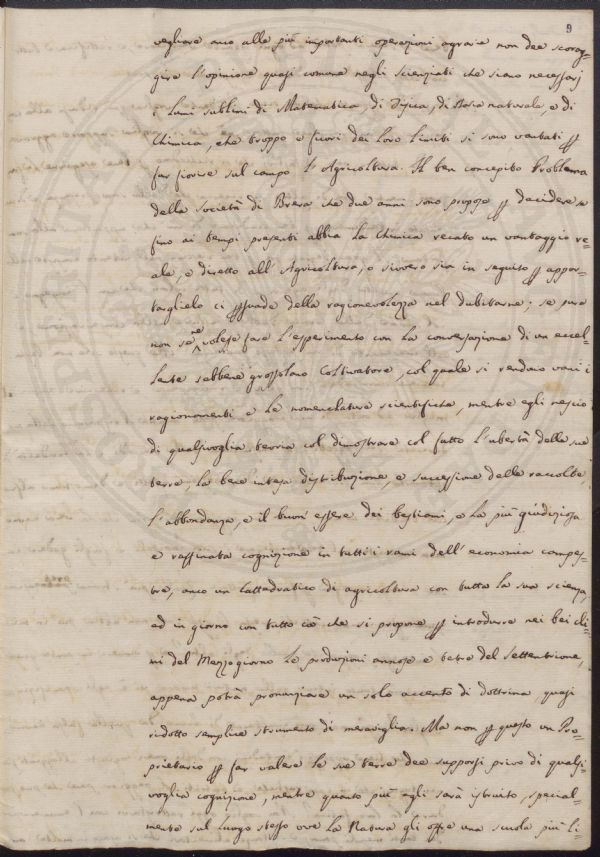 9
vegliare anco alle più importanti operazioni agrarie non dee scorag=
gire l'opinione quasi comune negli Scienziati che siano necessarj
i lumi sublimi di Matematica, di Fisica, di Storia naturale, e di
Chimica, che troppo e fuori dei loro limiti si sono vantati p
far fiorire sul campo l'Agricoltura. Il ben concepito Problema
della Società di Brera che due anni sono propose p decidere se
fino ai tempi presenti abbia la Chimica recato un vantaggio re=
ale, e diretto all'Agricoltura, o sivvero sia in seguito p appor=
targlielo ci psuade della ragionevolezza nel dubitarne; se pure
non se ne volesse fare l'esperimento con la conversazione di un eccel=
lente sebbene grossolano Coltivatore, col quale si rendono vani i
ragionamenti e le nomenclature scientifiche, mentre egli nescio
di qualsivoglia teoria col dimostrare col fatto l'ubertà delle sue
terre, la bene intesa distribuzione, e successione delle raccolte
l'abbondanza, e il buon essere dei bestiami, e la più giudiziosa
e raffinata cognizione in tutti i rami dell'economia campes=
tre, anco un Cattedratico di agricoltura con tutta la sua scienza,
ed in giorno con tutto ciò che si propone p introdurre nei bei cli=
mi del Mezzogiorno le produzioni annose e tetre del Settentrione,
appena potrà pronunziare un solo accento di dottrina, quasi
ridotto semplice strumento di meraviglia. Ma non p questo un Pro=
prietario p far valere le sue terre dee supporsi privo di qualsi=
voglia cognizione, mentre quanto più egli sarà istruito, special=
mente sul luogo stesso ove la Natura gli offre una scuola più li=